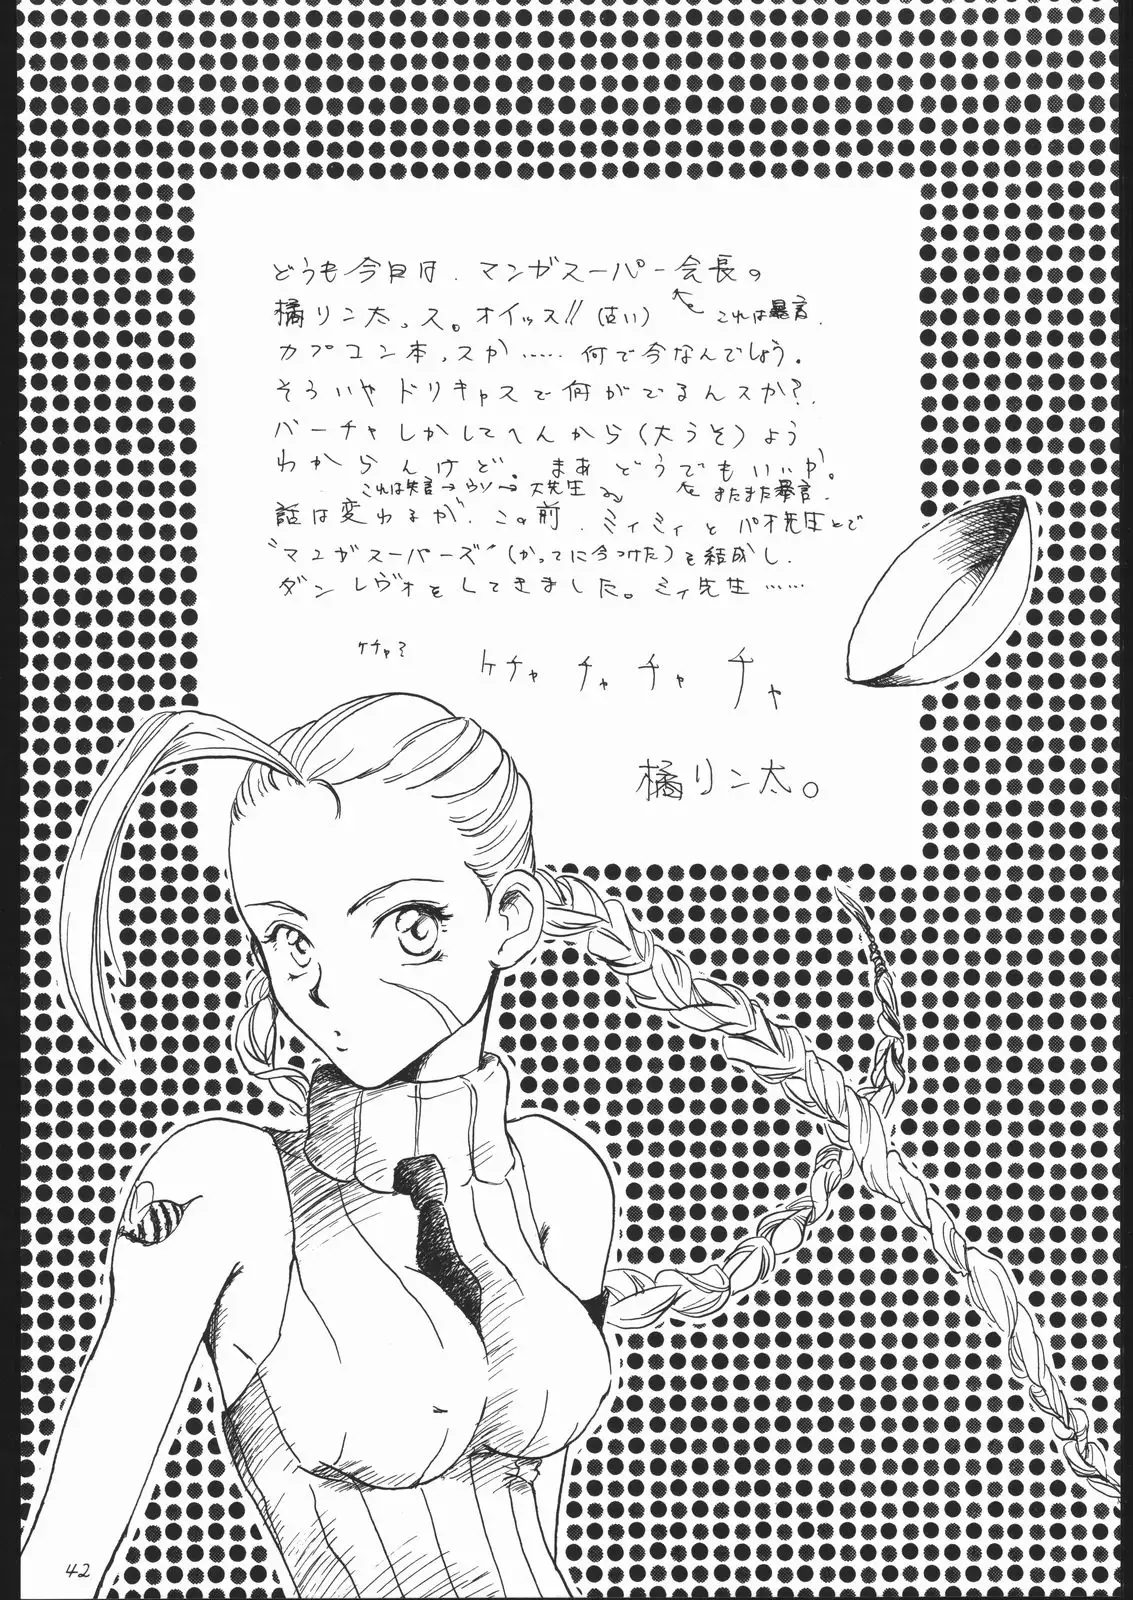 どうも今日は、マンガスーパー会長の
橘リン太っス。オイッス!!(古い)
これは暴言。
カプコン本っスか……何で今なんでしょう。
そういやドリキャスで何がでるんスか?
バーチャしかしてへんから(大うそ)よう
わからんけど。まあどうでもいいか。
これは失言→ウソ→大先生
またまた暴言。
話は変わるが、この前、ミィミィとパオ先生とで
"マンガスーパーズ"(かってに今つけた)を結成し、
ダンレヴォをしてきました。ミィ先生……
ケチャ?
ケチャチャチャチャ
橘リン太。
42